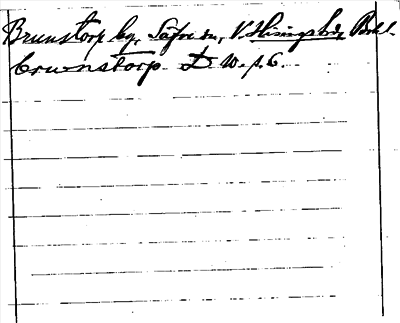 Brunstorp by, Säfve sn, V. Hisings hd, Bohl.
Brunnstorp. D. W. f. C.